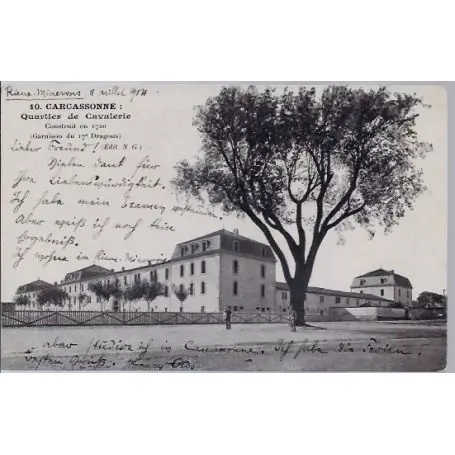 Rieux-Minervois, 8 juillet 1904
10. CARCASSONNE :
Quartier de Cavalerie
Construit en 1720
(Garnison du 17e Dragons)
(Édit. N. G.)
Lieber Freund!
Vielen Dank für
Ihre Liebenswürdigkeit.
Ich habe mein Examen
Aber weiß ich noch kein
Ergebniß.
Ich wohne in Rieux-Minervois
aber studire ich in Carcassonne. Ich habe die Ferien.
Besten Gruß.